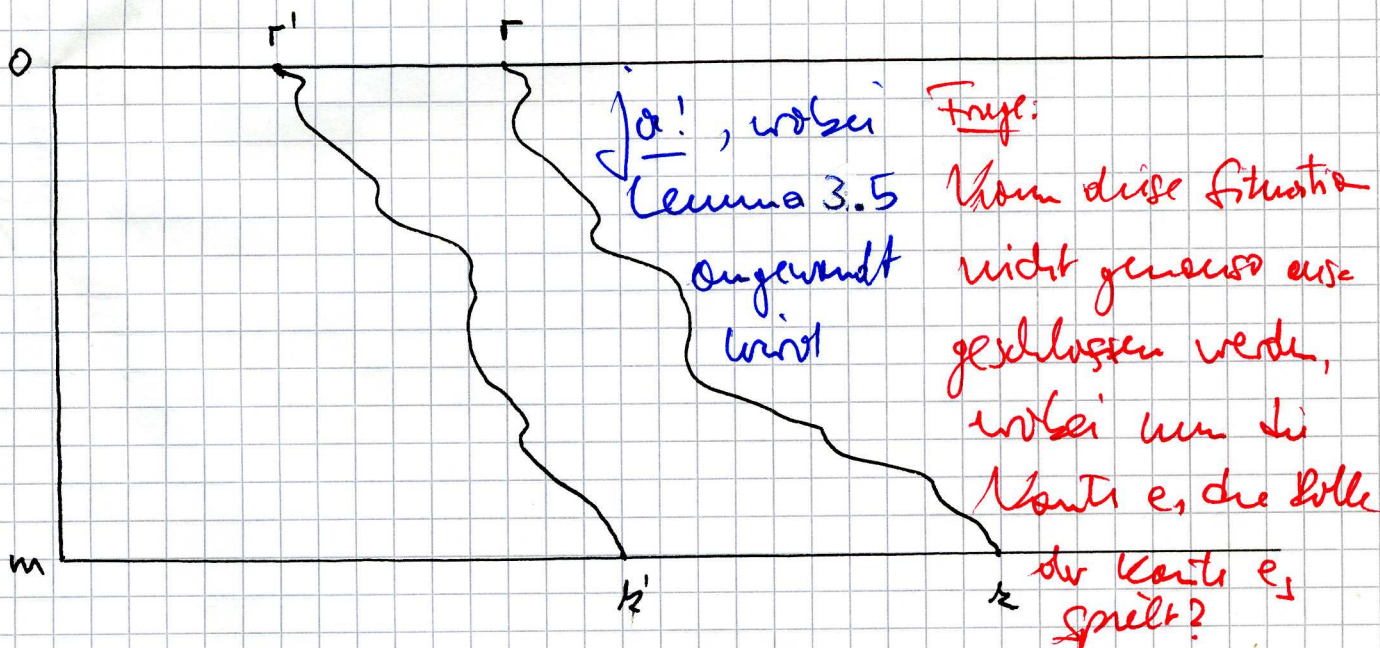 r' r
0
ja! , wobei
Lemma 3.5
angewandt
wird
Frage:
Kann diese Situation
nicht genauso aus-
geschlossen werden,
wobei nun die
Kante e, die Rolle
der Kante e,
spielt?
m
k' k